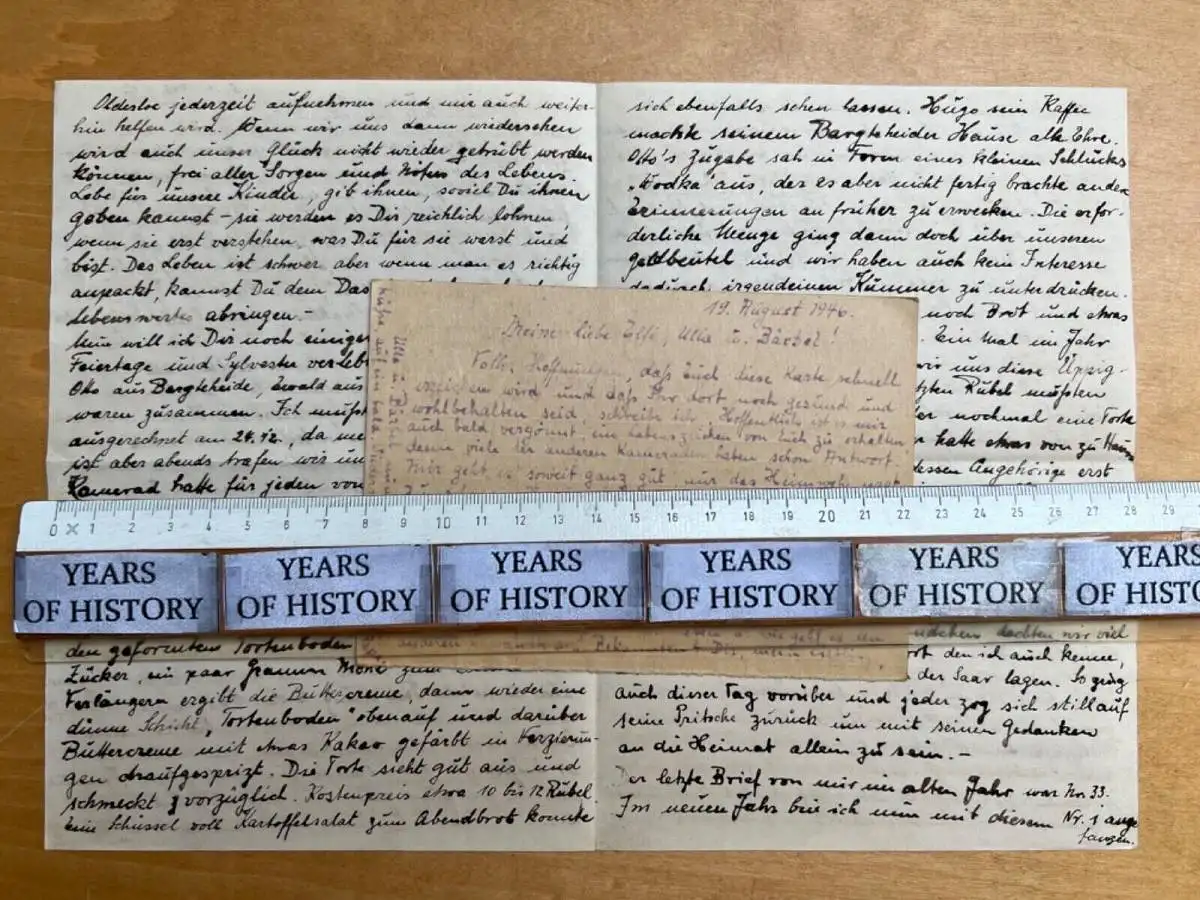 Oldesloe jederzeit aufnehmen und mir auch weiter-
hin helfen wird. Wenn wir uns dann wiedersehen
wird auch unser Glück nicht wieder getrübt werden
können, frei aller Sorgen und Nöten des Lebens.
Lebe für unsere Kinder, gib ihnen, soviel Du ihnen
geben kannst – sie werden es Dir reichlich lohnen,
wenn sie erst verstehen, was Du für sie warst und
bist. Das Leben ist schwer aber wenn man es richtig
anpackt, kannst Du dem Das
lebenswertes abringen. –
Nun will ich Dir noch einiges
Feiertage und Sylvester verleb
Otto aus Bargteheide, Ewald aus
waren zusammen. Ich mußt
ausgerechnet am 24.12., da
ist aber abends trafen wir un
Kamerad hatte für jeden von
den geformten Tortenboden
Zucker, ein paar Gramm zum
Verlängern ergibt die Buttercreme, dann wieder eine
dünne Schicht „Tortenboden" obenauf und darüber
Buttercreme mit etwas Kakao gefärbt in Verzierun-
gen draufgesprizt. Die Torte sieht gut aus und
schmeckt vorzüglich. Kostenpreis etwa 10 bis 12 Rubel.
Eine Schüssel voll Kartoffelsalat zum Abendbrot konnte
sich ebenfalls sehen lassen. Hugo sein Kaffee
machte seinem Bargteheider Hause alle Ehre.
Otto's Zugabe sah in Form eines kleinen Schlucks
„Wodka" aus, der es aber nicht fertig brachte andere
Erinnerungen an früher zu erwecken. Die erfor-
derliche Menge ging dann doch über unseren
Geldbeutel und wir haben auch kein Interesse
dadurch irgendeinen Kummer zu unterdrücken.
noch Brot und etwas
Ein mal im Jahr
wir uns diese Üppig-
tzten Rubel mußten
nochmal eine Torte
hatte etwas von zu Haus
dessen Angehörige erst
dachten wir viel
rt den ich auch kenne,
der Saar lagen. So ging
auch dieser Tag vorüber und jeder zog sich still auf
seine Pritsche zurück um mit seinen Gedanken
an die Heimat allein zu sein. –
Der letzte Brief von mir im alten Jahr war Nr. 33.
Im neuen Jahr bin ich nun mit diesem Nr. 1 ange
fangen.
19. August 1946.
Meine liebe Elli, Ulla u. Bärbel!
Voller Hoffnungen, daß Euch diese Karte schnell
erreichen wird und daß Ihr dort noch gesund und
wohlbehalten seid, schreibe ich. Hoffentlich ist es mir
auch bald vergönnt, ein Lebenszeichen von Euch zu erhalten
denn viele der anderen Kameraden haben schon Antwort.
Mir geht es soweit ganz gut, nur das Heimweh
0 1 2 3 4 5 6 7 8 9 10 11 12 13 14 15 16 17 18 19 20 21 22 23 24 25 26 27 28 29
YEARS
OF HISTORY
YEARS
OF HISTORY
YEARS
OF HISTORY
YEARS
OF HISTORY
YEARS
OF HISTORY
YEARS
OF HISTO